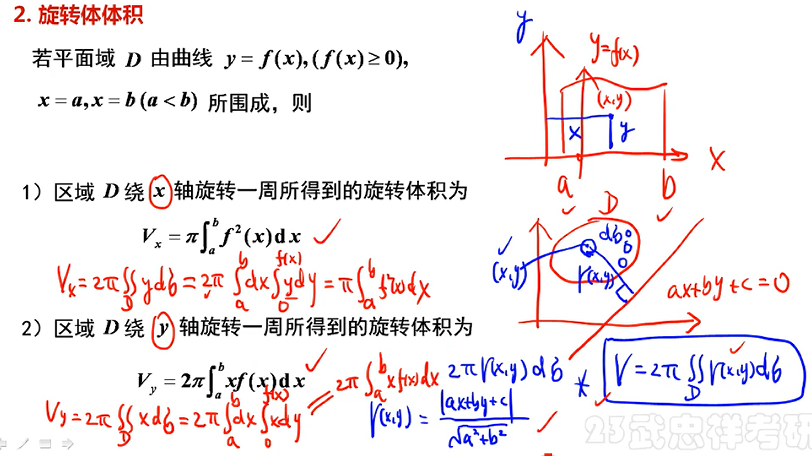 2. 旋转体体积
若平面域 D 由曲线 y = f(x), (f(x) ≥ 0),
x = a, x = b (a < b) 所围成，则
1）区域 D 绕 x 轴旋转一周所得到的旋转体积为
V_x = π∫_a^b f²(x)dx ✓
V_x = 2π∬_D y dσ = 2π∫_a^b dx∫_0^{f(x)} y dy = π∫_a^b f²(x)dx
2）区域 D 绕 y 轴旋转一周所得到的旋转体积为
V_y = 2π∫_a^b xf(x)dx ✓
V_y = 2π∬_D x dσ = 2π∫_a^b dx∫_0^{f(x)} x dy = 2π∫_a^b xf(x)dx
y
y=f(x)
(x,y)
x y
a b x
D
dσ
(x,y) r(x,y)
ax+by+c=0
2πr(x,y)dσ
* V = 2π∬_D r(x,y)dσ
r(x,y) = |ax+by+c| / √(a²+b²) ✓
23武忠祥考研